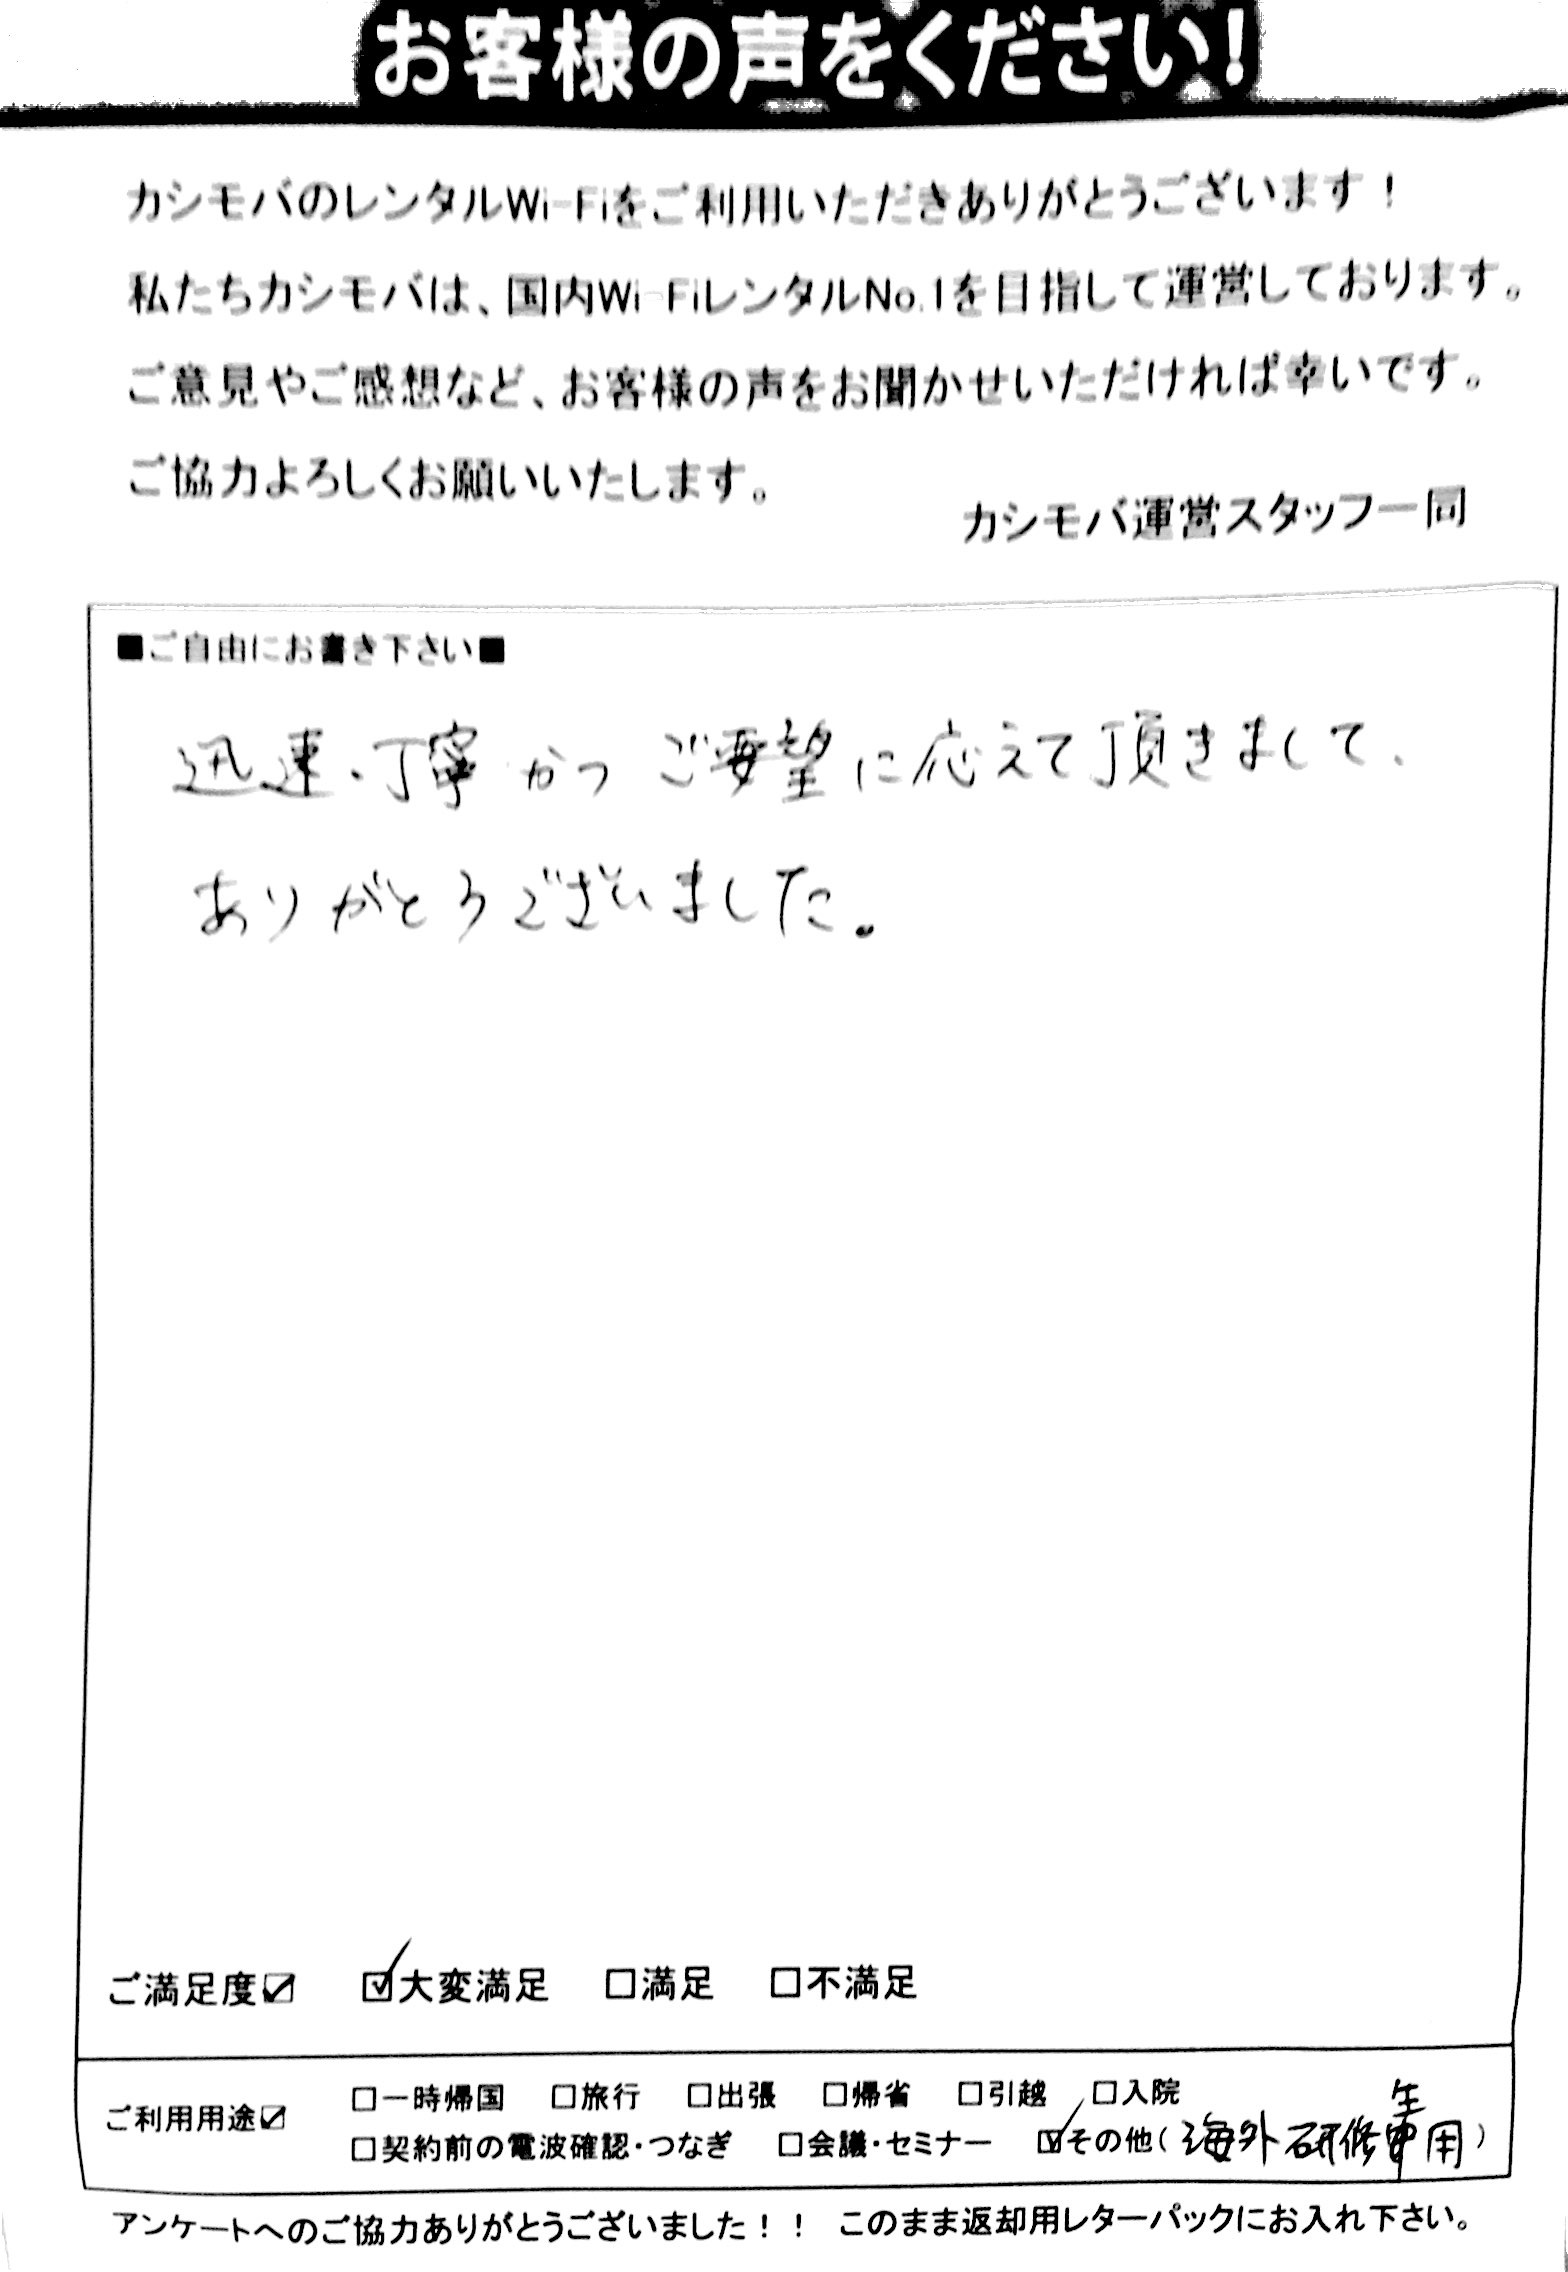 お客様の声をください!
カシモバのレンタルWi-Fiをご利用いただきありがとうございます！
私たちカシモバは、国内Wi-FiレンタルNo.1を目指して運営しております。
ご意見やご感想など、お客様の声をお聞かせいただければ幸いです。
ご協力よろしくお願いいたします。
カシモバ運営スタッフ一同
■ご自由にお書き下さい■
迅速・丁寧かつご要望に応えて頂きまして、
ありがとうございました。
ご満足度☑ ☑大変満足 □満足 □不満足
ご利用用途☑ □一時帰国 □旅行 □出張 □帰省 □引越 □入院
□契約前の電波確認・つなぎ □会議・セミナー ☑その他(海外研修生用)
アンケートへのご協力ありがとうございました！！ このまま返却用レターパックにお入れ下さい。